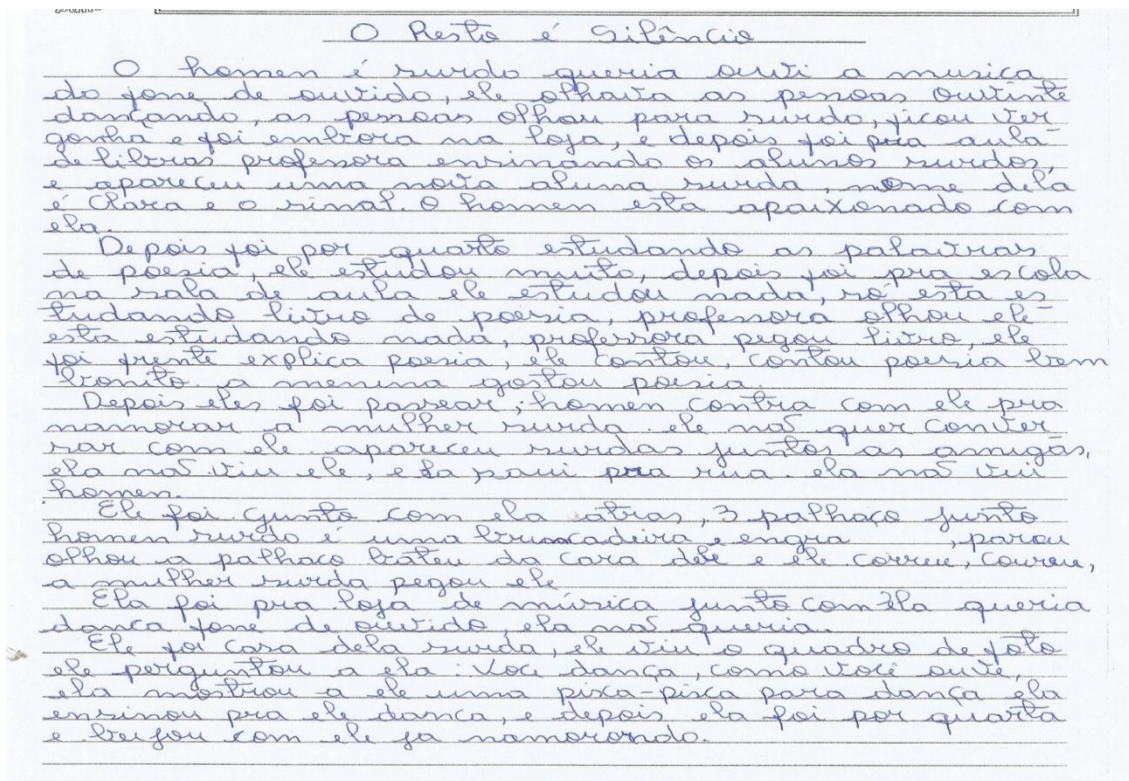 O Resto é Silêncio
O homen é surdo queria ouvi a musica
do fone de ouvido, ele olhava as pessoas ouvinte
dançando, as pessoas olhou para surdo, ficou ver
gonha e foi embora na loja, e depois foi pra aula
de libras professora ensinando os alunos surdos,
e apareceu uma nova aluna surda, nome dela
é Clara e o sinal. O homen esta apaixonado com
ela.
Depois foi por quarto estudando as palavras
de poesia, ele estudou muito, depois foi pra escola
na sala de aula ele estudou nada, só esta es
tudando livro de poesia, professora olhou ele
esta estudando nada, professora pegou livro, ele
foi frente explica poesia, ele contou, contou poesia bem
bonito. a menina gostou poesia.
Depois eles foi passear, homen contra com ele pra
namorar a mulher surda. ele não quer conver
sar com ele apareceu surdas juntos as amigas,
ela não viu ele, ela saui pra rua. ela não viu
homen.
Ele foi gunto com ela atras, 3 palhaço junto
homen surdo é uma brincadeira e engra , parou
olhou a palhaço bateu da cara dele e ele correu, coureu,
a mulher surda pegou ele
Ela foi pra loja de música junto com ela queria
danca fone de ouvido, ela não queria.
Ele foi casa dela surda, ele viu o quadro de foto
ele perguntou a ela: Voce dança, como você ouve,
ela mostrou a ele uma pisca-pisca para dança ela
ensinou pra ele danca, e depois ela foi por quarta
e beijou com ele ja namorondo.